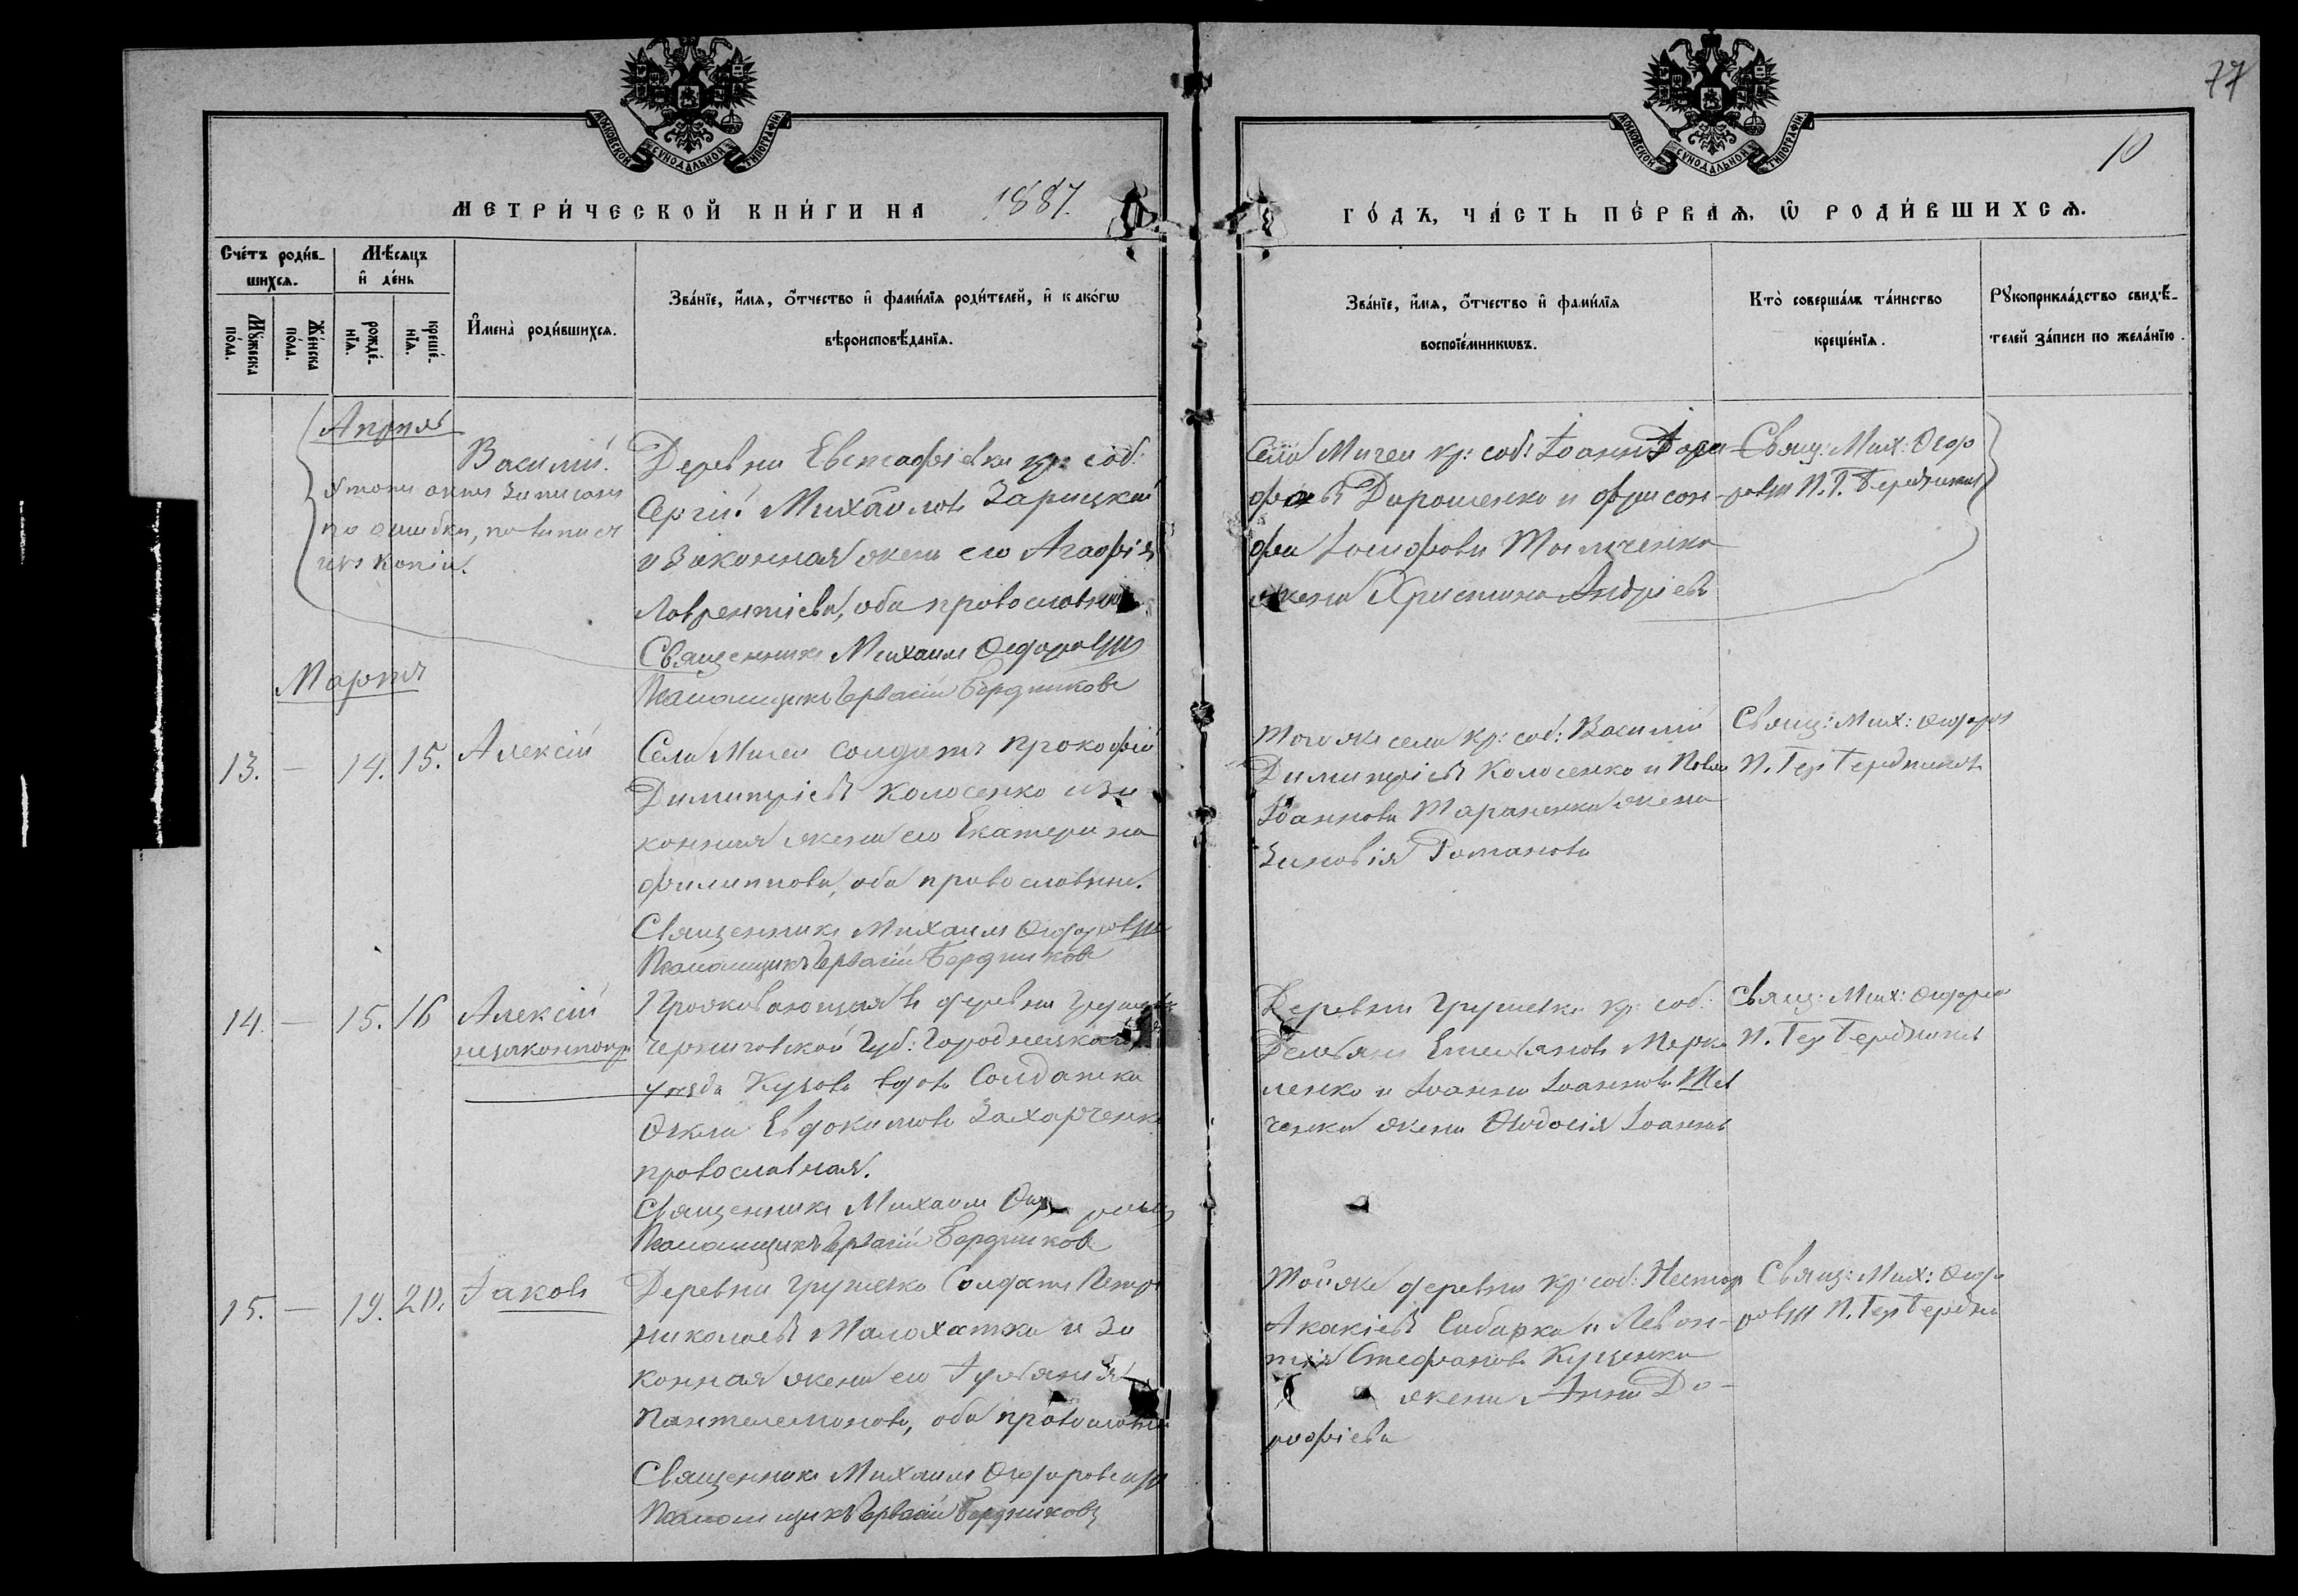 77
10
МОСКОВСКОЙ СУНОДАЛЬНОЙ ТИПОГРАФІИ
МОСКОВСКОЙ СУНОДАЛЬНОЙ ТИПОГРАФІИ
МЕТРИ́ЧЕСКОЙ КНИ́ГИ НА 1887.
ГО́ДЪ, ЧА́СТЬ ПЕ́РВАѦ, Ѡ҆ РОДИ́ВШИХСѦ.
Сче́тъ роди́в-
шихсѧ.
Мꙋ́жеска
по́ла.
Же́нска
по́ла.
Мѣ́сѧцъ
и҆ де́нь
рожде́-
нїѧ.
креще́-
нїѧ.
И҆мена̀ роди́вшихсѧ.
Зва́нїе, и҆́мѧ, ѻ҆́тчество и҆ фами́лїѧ роди́телей, и҆ како́гѡ
вѣроисповѣ́данїѧ.
Зва́нїе, и҆́мѧ, ѻ҆́тчество и҆ фами́лїѧ
воспрїе́мникѡвъ.
Кто̀ соверша́лъ та́инство
креще́нїѧ.
Рꙋкоприкла́дство свидѣ́-
телей за́писи по жела́нїю.
Апрѣль
Василій.
записанъ
по ошибки,
копіи.
Деревни Евстафіевки кр: соб:
Сергій Михайловъ Зарицкій
и законная жена его Агафія
Лаврентіева, оба православные
Священникъ Михаилъ Ѳедоровичъ
Псаломщикъ Гервасій Бердниковъ
Села Мигеи кр: соб: Іоаннъ Доро-
фѣевъ Дорошенко и
фа Іосифова Ткаченка
жена Христина Андріева
Свящ: Мих: Ѳедо
ровичъ П. Г. Бердниковъ
Мартъ
13. — 14. 15. Алексій
Села Мигеи солдатъ Прокофій
Димитріевъ Колосенко и за
конная жена его Екатерина
Филиппова, оба православные.
Священникъ Михаилъ Ѳедоровичъ
Псаломщикъ Гервасій Бердниковъ
Того же села кр: соб: Василій
Димитріевъ Колосенко и Павла
Іоаннова Тараненка жена
Зиновія Романова
Свящ: Мих: Ѳедоров
П. Гер Бердниковъ
14. — 15. 16 Алексій
незаконнорож
Проживающая въ деревни Грушевкѣ
Черниговской Губ: Городнецкаго
уѣзда вдова Солдатка
Ѳекла Евдокимова Захарченко
православная.
Священникъ Михаилъ Ѳедоровичъ
Псаломщикъ Гервасій Бердниковъ
Деревни Грушевки кр: соб:
Емельяновъ Марка
ленко и Іоанна Іоаннова
ченка жена Ѳеодосія Іоаннов
Свящ: Мих: Ѳедоров
П. Гер Бердниковъ
15. — 19. 20. Іаковъ
Деревни Грушевки Солдатъ Петръ
Николаевъ Малохатка и за
конная жена его Іуліанія
Пантелеимонова, оба православные
Священникъ Михаилъ Ѳедоровичъ
Псаломщикъ Гервасій Бердниковъ
Той же деревни кр: соб: Нестор
Акакіевъ Сабарка и Леон-
тія Стефанова Куценка
жена Анна До-
рофіева
Свящ: Мих: Ѳедо
ровичъ П. Гер Бердни